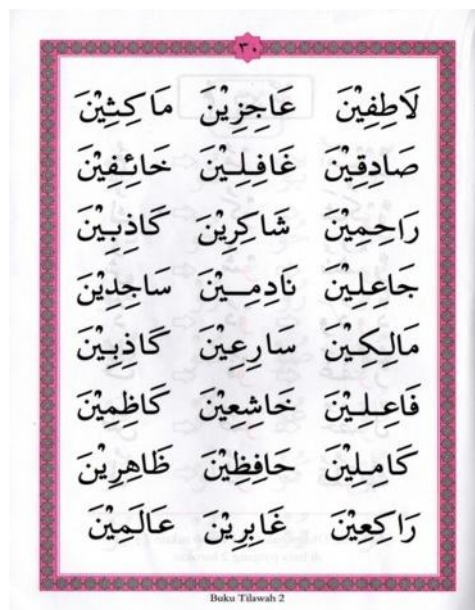 ٣٠
لَاطِفِيْنَ عَاجِزِيْنَ مَاكِثِيْنَ
صَادِقِيْنَ غَافِلِيْنَ خَائِفِيْنَ
رَاحِمِيْنَ شَاكِرِيْنَ كَاذِبِيْنَ
جَاعِلِيْنَ نَادِمِيْنَ سَاجِدِيْنَ
مَالِكِيْنَ سَارِعِيْنَ كَاذِبِيْنَ
فَاعِلِيْنَ خَاشِعِيْنَ كَاظِمِيْنَ
كَامِلِيْنَ حَافِظِيْنَ ظَاهِرِيْنَ
رَاكِعِيْنَ غَابِرِيْنَ عَالَمِيْنَ
Buku Tilawah 2